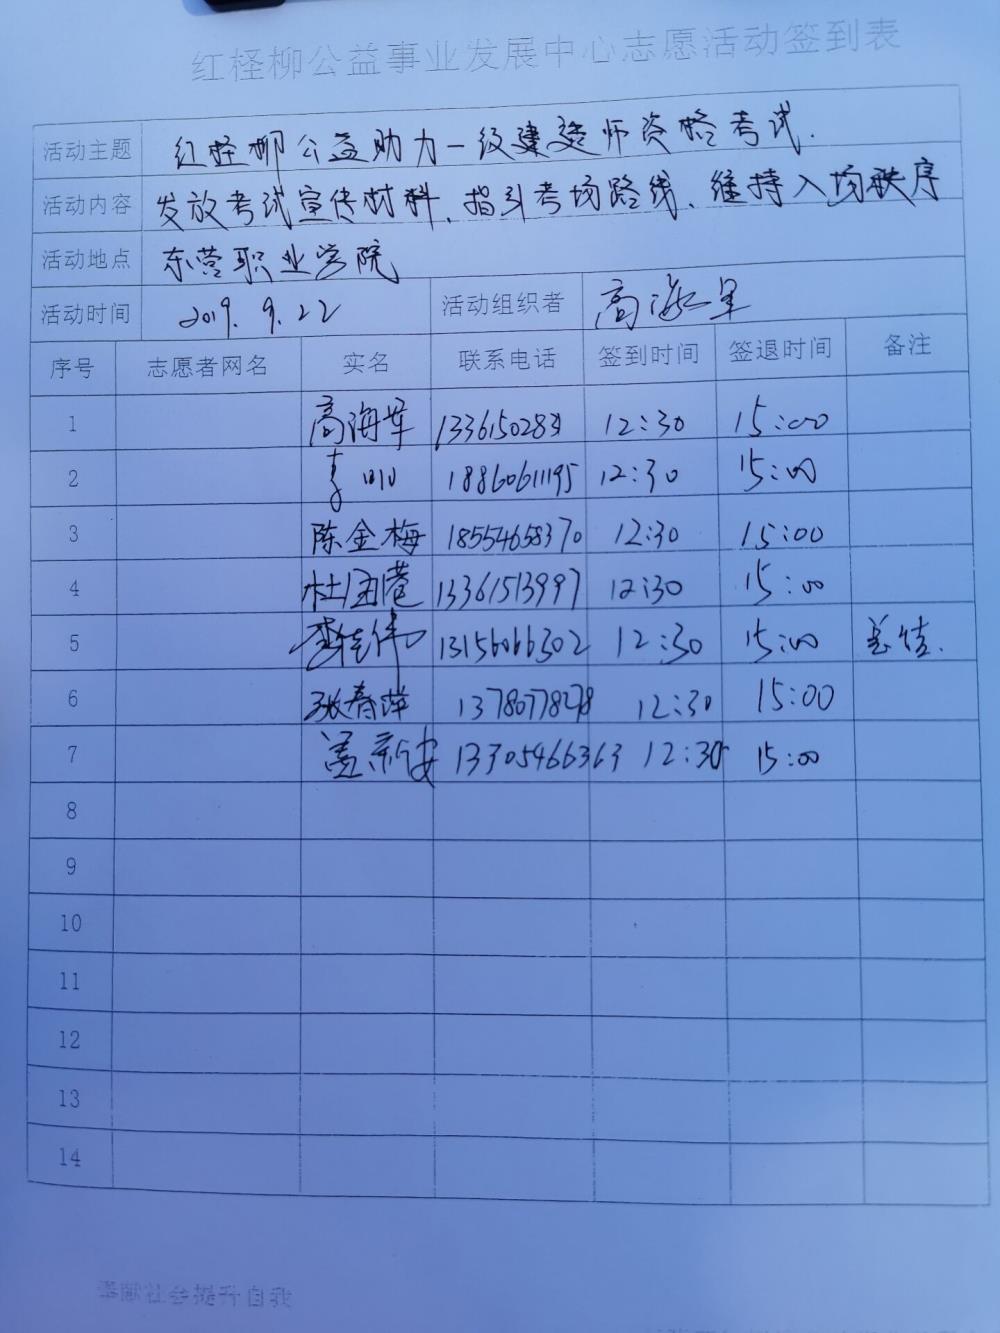 红柽柳公益事业发展中心志愿活动签到表
活动主题 红柽柳公益助力一级建造师资格考试.
活动内容 发放考试宣传材料、指引考场路线、维持入场秩序
活动地点 东营职业学院
活动时间 2019.9.22 活动组织者 高海军
序号 志愿者网名 实名 联系电话 签到时间 签退时间 备注
1 高海军 12:30 15:00
2 李 18860611195 12:30 15:00
3 陈金梅 18554658370 12:30 15:00
4 杜 13361513997 12:30 15:00
5 李 伟 13156066302 12:30 15:00
6 张春萍 13780778278 12:30 15:00
7 盖新安 13305466363 12:30 15:00
8
9
10
11
12
13
14
奉献社会提升自我